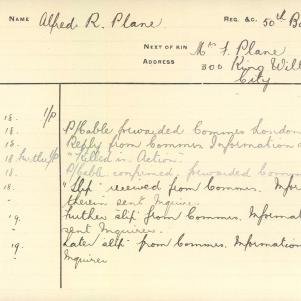 NAME Alfred R. Plane REG. &C. 50th Ba
NEXT OF KIN Mr F. Plane
ADDRESS 300 King Will
City
18. 1/p P/Cable forwarded Commes London
18. Reply from Commes Information
18 further 1/p "Killed in Action"
18. P/Cable confirmed, forwarded Comm
18. "Slip" received from Commes. Inform
therein sent Inquirer
19. Further slip from Commes. Informa
sent Inquirer
19. Later slip from Commes. Information
Inquirer